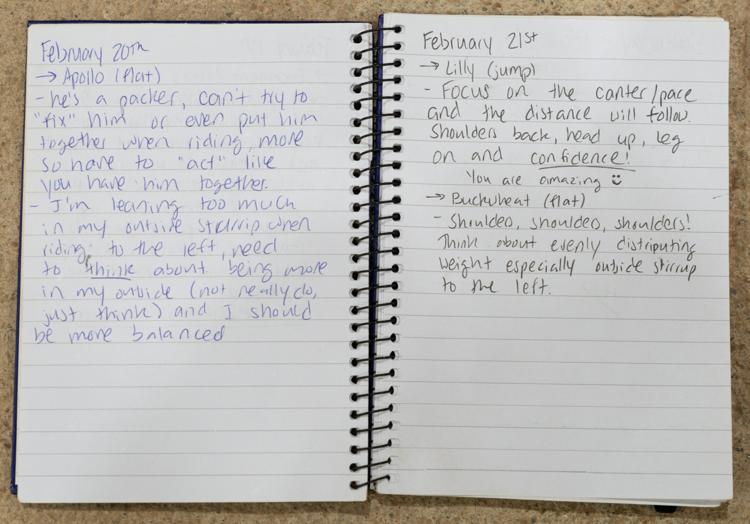 February 20th
→ Apollo (flat)
- he's a packer, can't try to
"fix" him or even put him
together when riding, more
so have to "act" like
you have him together.
- I'm leaning too much
in my outside stirrip when
riding to the left, need
to think about being more
in my outside (not really do,
just think) and I should
be more balanced
February 21st
→ Lilly (jump)
- Focus on the canter/pace
and the distance will follow.
Shoulders back, head up, leg
on and confidence!
You are amazing
→ Buckwheat (flat)
- Shoulder, shoulder, shoulders!
Think about evenly distributing
weight especially outside stirrup
to the left.